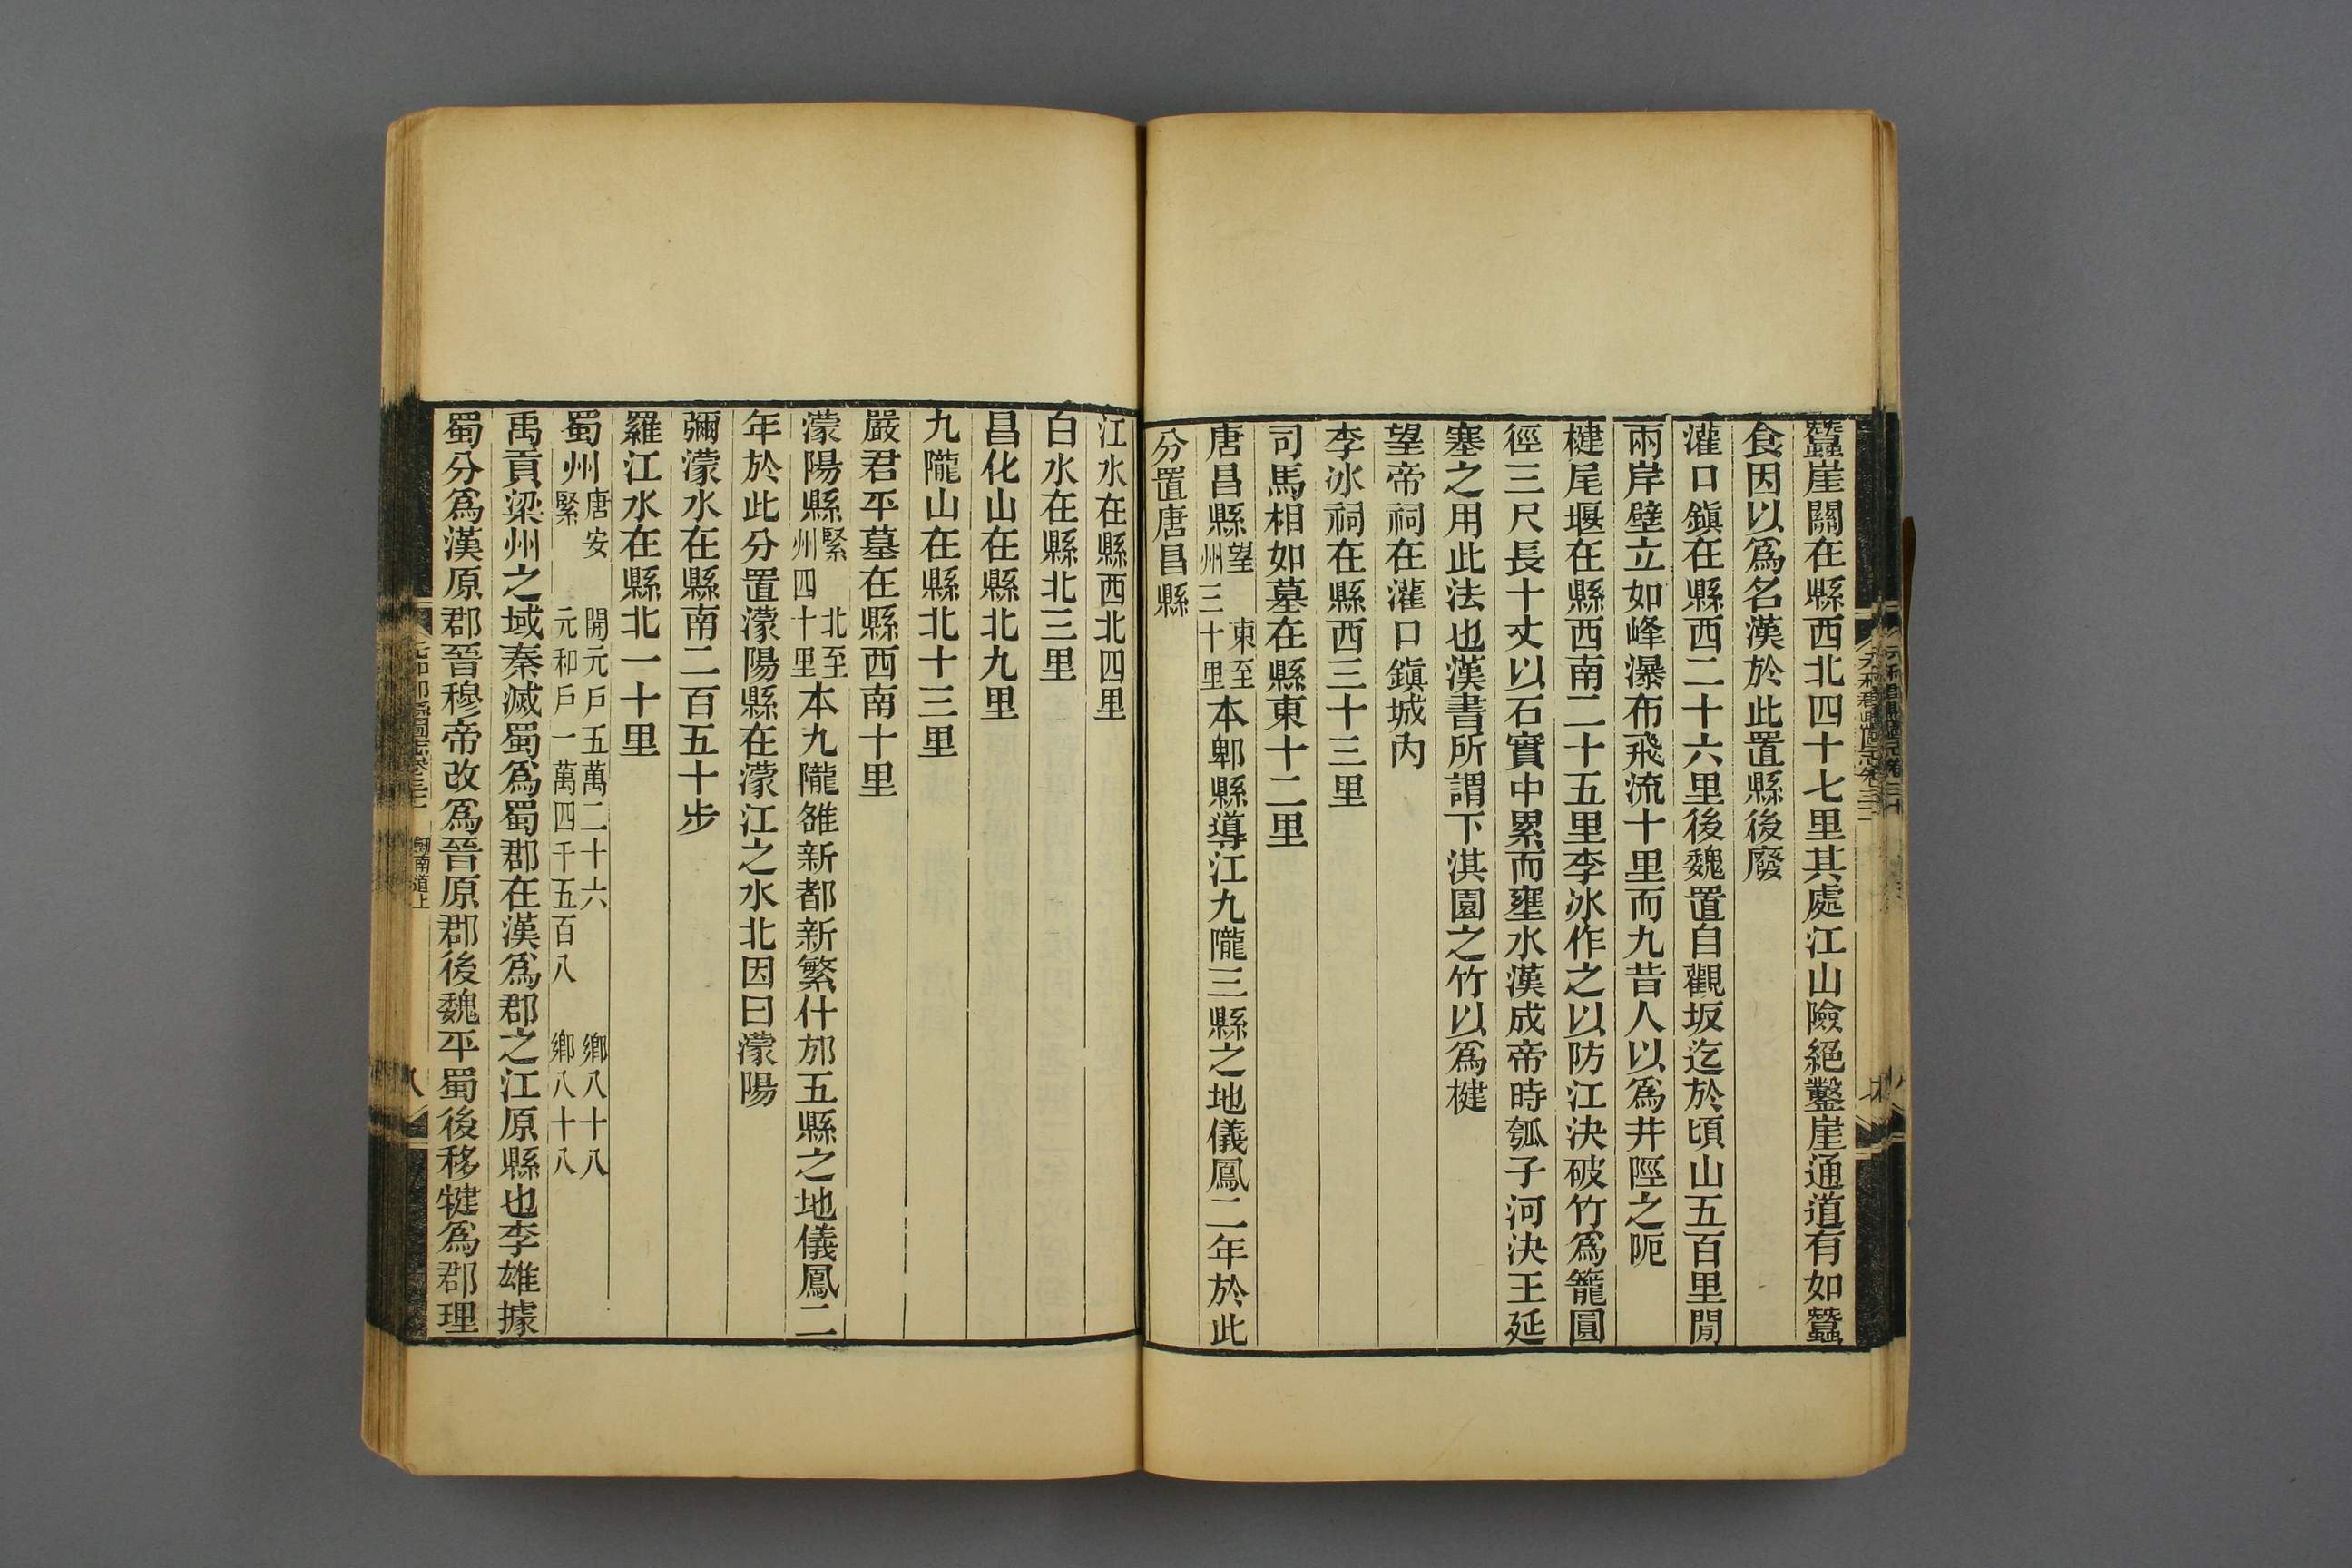 蠶崖關在縣西北四十七里其處江山險絕鑿崖通道有如蠶
食因以爲名漢於此置縣後廢
灌口鎭在縣西二十六里後魏置自觀坂迄於頃山五百里閒
兩岸壁立如峰瀑布飛流十里而九昔人以爲井陘之阨
楗尾堰在縣西南二十五里李冰作之以防江決破竹爲籠圓
徑三尺長十丈以石實中累而壅水漢成帝時瓠子河決王延
塞之用此法也漢書所謂下淇園之竹以爲楗
望帝祠在灌口鎭城內
李冰祠在縣西三十三里
司馬相如墓在縣東十二里
唐昌縣望 東至州三十里本郫縣導江九隴三縣之地儀鳳二年於此
分置唐昌縣
江水在縣西北四里
白水在縣北三里
昌化山在縣北九里
九隴山在縣北十三里
嚴君平墓在縣西南十里
濛陽縣緊 北至州四十里本九隴雒新都新繁什邡五縣之地儀鳳二
年於此分置濛陽縣在濛江之水北因曰濛陽
彌濛水在縣南二百五十步
羅江水在縣北一十里
蜀州唐安 緊 開元戶五萬二十六 鄉八十八 元和戶一萬四千五百八 鄉八十八
禹貢梁州之域秦滅蜀爲蜀郡在漢爲郡之江原縣也李雄據
蜀分爲漢原郡晉穆帝改爲晉原郡後魏平蜀後移犍爲郡理
劒南道上
八